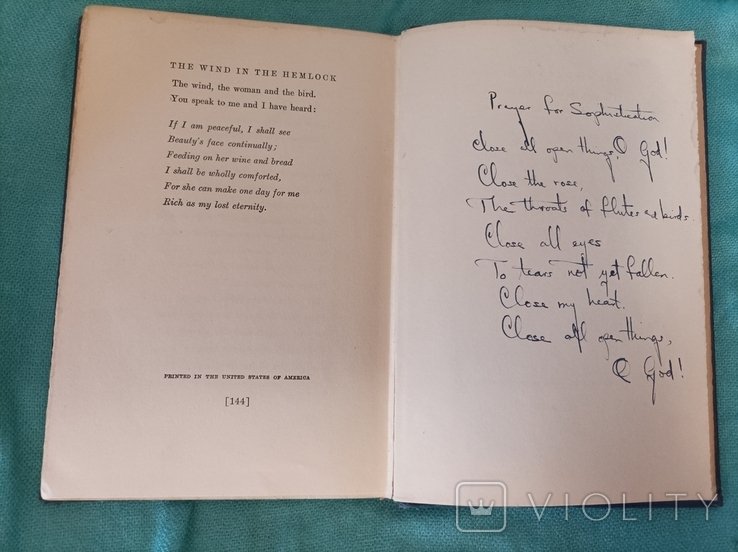 THE WIND IN THE HEMLOCK
The wind, the woman and the bird.
You speak to me and I have heard:
If I am peaceful, I shall see
Beauty's face continually;
Feeding on her wine and bread
I shall be wholly comforted,
For she can make one day for me
Rich as my lost eternity.
PRINTED IN THE UNITED STATES OF AMERICA
[144]
Prayer for Sophistication
Close all open things, O God!
Close the rose,
The throats of flutes and birds.
Close all eyes
To tears not yet fallen.
Close my heart.
Close all open things,
O God!
VIOLITY